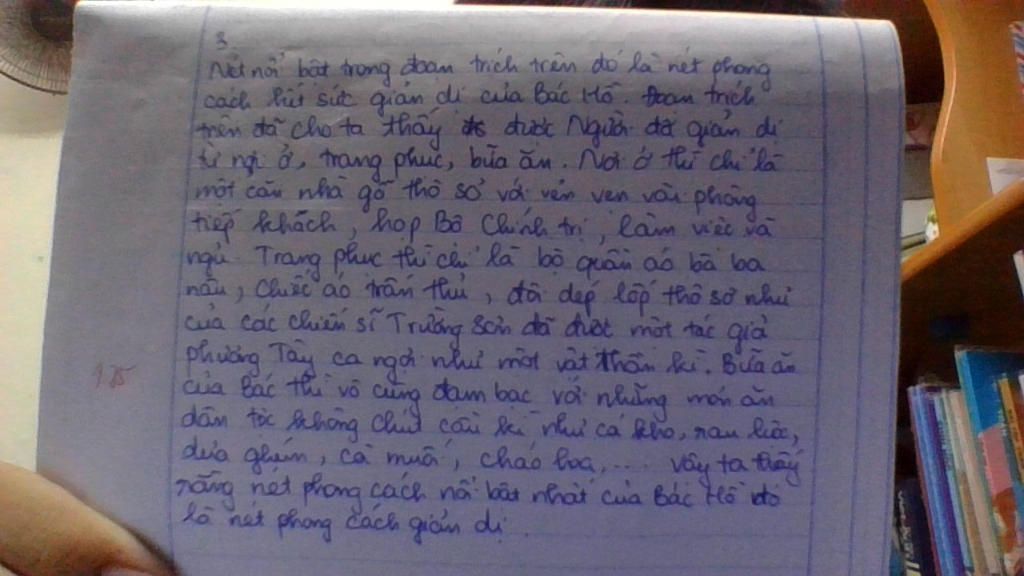 3
Nét nổi bật trong đoạn trích trên đó là nét phong
cách hết sức giản dị của Bác Hồ. Đoạn trích
trên đã cho ta thấy được Người đã giản dị
từ nơi ở, trang phục, bữa ăn. Nơi ở thì chỉ là
một căn nhà gỗ thô sơ với vẻn vẹn vài phòng
tiếp khách, họp Bộ Chính trị, làm việc và
ngủ. Trang phục thì chỉ là bộ quần áo bà ba
nâu, chiếc áo trấn thủ, đôi dép lốp thô sơ như
của các chiến sĩ Trường Sơn đã được một tác giả
phương Tây ca ngợi như một vật thần kì. Bữa ăn
của Bác thì vô cùng đạm bạc với những món ăn
dân tộc không chút cầu kì như cá kho, rau luộc,
dưa ghém, cà muối, cháo hoa,.... Vậy ta thấy
rằng nét phong cách nổi bật nhất của Bác Hồ đó
là nét phong cách giản dị.